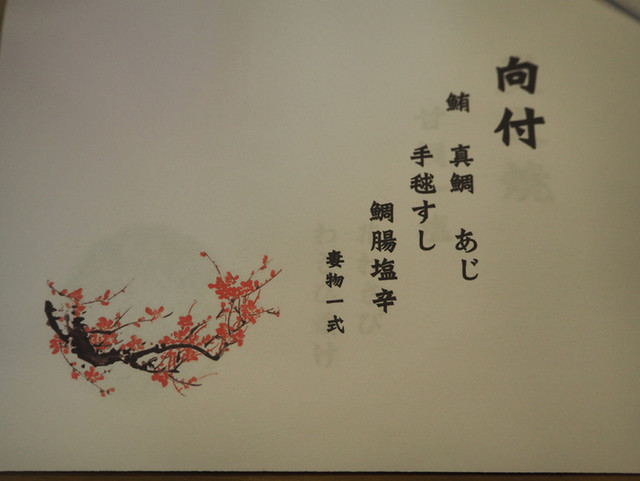 向付
鮪 真鯛 あじ
手毬すし
鯛腸塩辛
妻物一式